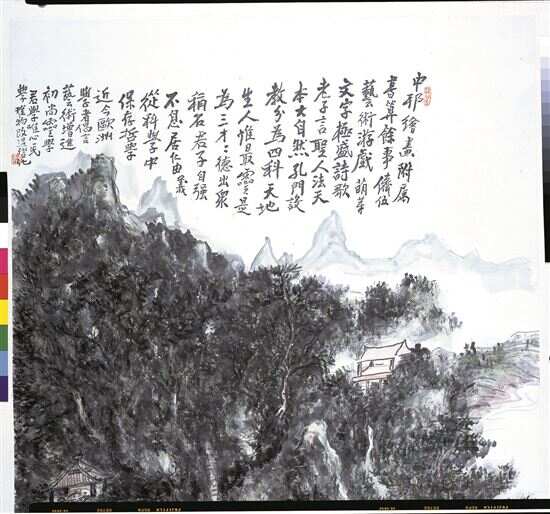 中邦繪畫附屬
書算餘事儕伍
藝術游戲萌芽
文字極盛詩歌
老子言聖人法天
本大自然孔門設
教分為四科天地
生人惟最靈是
為三才々德出衆
稱君子自强
不息居仁由義
從科學中
保存哲學
近今歐洲
學者倡言
藝術增進
初尚靈學
學唯心民
學唯物改